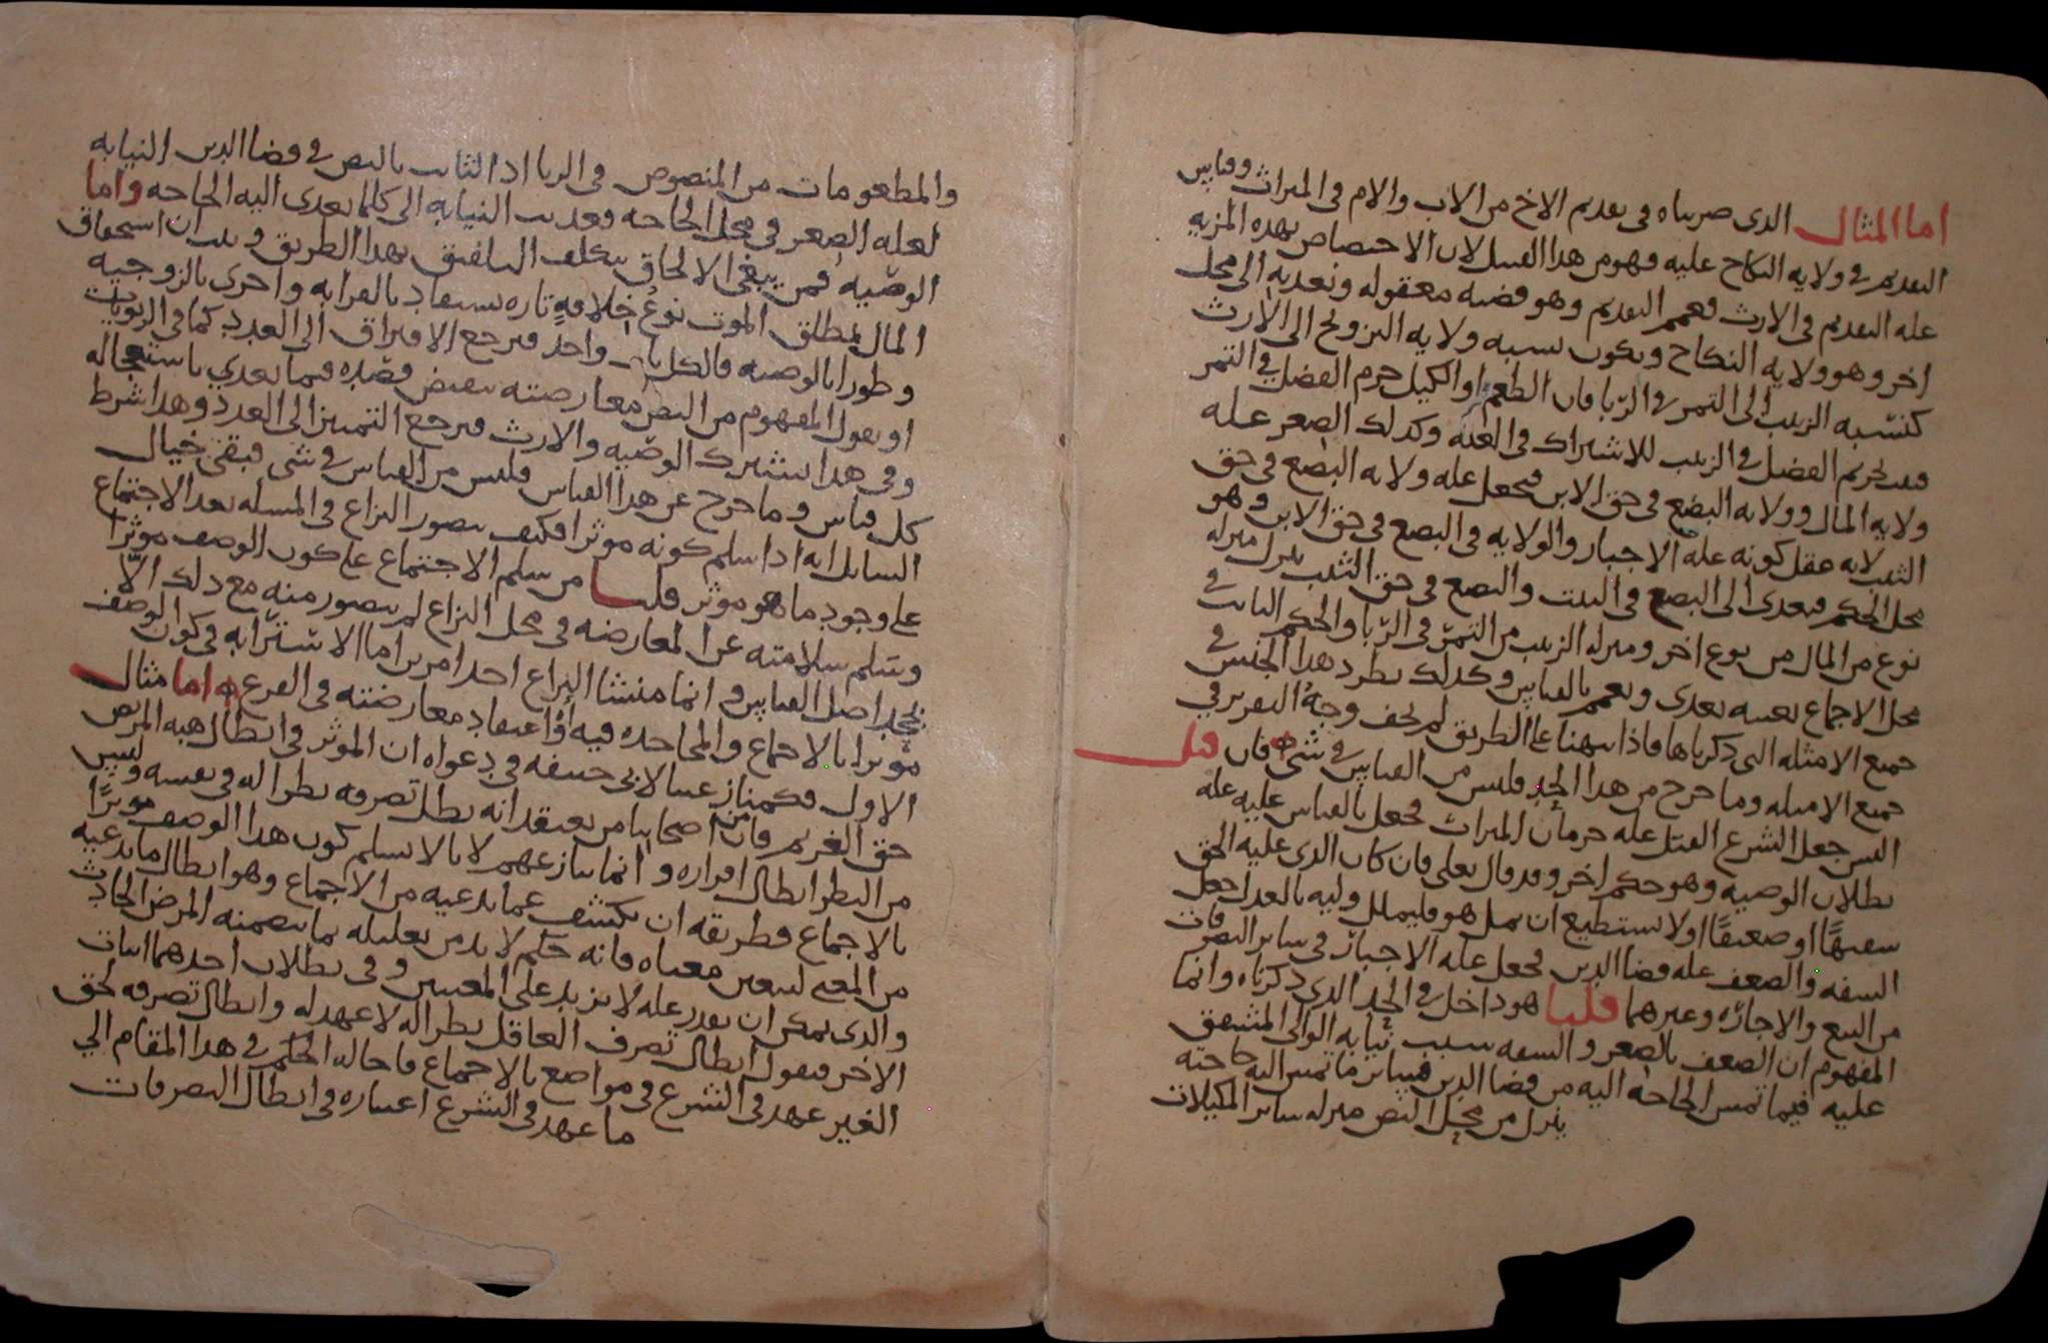 اما المثال الذى ضربناه فى تقديم الاخ من الاب والام فى الميراث وقياس
التقديم فى ولايه النكاح عليه فهو من هذا القبيل لان الاختصاص بهذه المزيه
عله التقديم فى الارث فعمم التقديم وهو قضيه معقوله وتعديه الى محل
اخر وهو ولايه النكاح ويكون نسبه ولايه التزويج الى الارث
كنسبه الزبيب الى التمر فى الربا فان الطعم او الكيل حرم الفضل فى التمر
فيحرم الفضل فى الزبيب للاشتراك فى العله وكذلك الصغر عله
ولايه المال وولايه البضع فى حق الابن فيجعل عله ولايه البضع فى حق
الثيب لانه عقل كونه عله الاجبار والولايه فى البضع فى حق الابن وهو
محل الحكم فيعدى الى البضع فى البنت والبضع فى حق الثيب ينزل منزله
نوع من المال من نوع اخر ومنزله الزبيب من التمر فى الربا والحكم الثابت فى
محل الاجماع بعينه يعدى ويعمم بالقياس وكذلك يطرد هذا الجنس فى
جميع الامثله التى ذكرناها فاذا نبهنا على الطريق لم يخف وجه التقرير فى
جميع الامثله وما خرج من هذا الحد فليس من القياس فى شى فان قيل
اليس جعل الشرع القتل عله حرمان الميراث فجعل بالقياس عليه عله
بطلان الوصيه وهو حكم اخر وقد قال تعلى فان كان الذى عليه الحق
سفيها او ضعيفا او لا يستطيع ان يمل هو فليملل وليه بالعدل جعل
السفه والضعف عله قضا الدين فجعل عله الاجبار فى ساير التصرفات
من البيع والاجاره وغيرهما قلنا هو داخل فى الحد الذى ذكرناه وانما
المفهوم ان الضعف بالصغر والسفه سبب نيابه الوالى المشفق
عليه فيما تمس الحاجه اليه من قضا الدين فساير ما تمس اليه حاجته
ينزل من محل النص منزله ساير المكيلات
والمطعومات من المنصوص فى الربا اذ الثابت بالنص فى قضا الدين النيابه
لعله الصغر فى محل الحاجه فعديت النيابه الى كلما تعدى اليه الحاجه واما
الوصيه فمن يبغى الالحاق يتكلف التلفيق بهذا الطريق ويثبت ان استحقاق
المال بمطلق الموت نوع خلافه تاره يستفاد بالقرابه واخرى بالزوجيه
وطورا بالوصيه فالكل باب واحد فيرجع الافتراق الى العدد كما فى الربويات
او يقول المفهوم من النص معارضته بنقيض قصده فيما تعدي باستعجاله
وفى هذا يشترك الوصيه والارث فيرجع التمييز الى العدد وهذا شرط
كل قياس وما خرج عن هذا القياس فليس من القياس فى شى فبقى خيال
السايل انه اذا سلم كونه موثرا فكيف يتصور النزاع فى المسله بعد الاجتماع
على وجود ما هو موثر قلنا من سلم الاجتماع على كون الوصف موثرا
وسلم سلامته عن المعارضه فى محل النزاع لم يتصور منه مع ذلك الا
بجحد اصل القياس وانما منشا النزاع احد امرين اما الاسترابه فى كون الوصف
موثرا بالاجماع والمجاحده فيه او اعتقاد معارضته فى الفرع اما مثال
الاول فكمنازعتنا لابى حنيفه فى دعواه ان الموثر فى ابطال هبه المريض
حق الغريم فان من اصحابنا من يعتقد انه يطل تصرفه نظرا له فى نفسه وليس
من النظر ابطال اقراره وانما ننازعهم لانا لا نسلم كون هذا الوصف موثرا
بالاجماع فطريقه ان يكشف عما يدعيه من الاجماع وهو ابطال ما يدعيه
من المعنى ليتعين معناه فانه حكم لا بد من تعليله بما يتضمنه المرض الحادث
والذى يمكن ان يقدر عله لا يزيد على المعنيين وفى بطلان احدهما اثبات
الاخر فيقول ابطال تصرف العاقل نظرا له لا عهد له وابطال تصرفه لحق
الغير عهد فى الشرع فى مواضع بالاجماع فاحاله الحكم فى هذا المقام الى
ما عهد فى الشرع اعتباره فى ابطال التصرفات